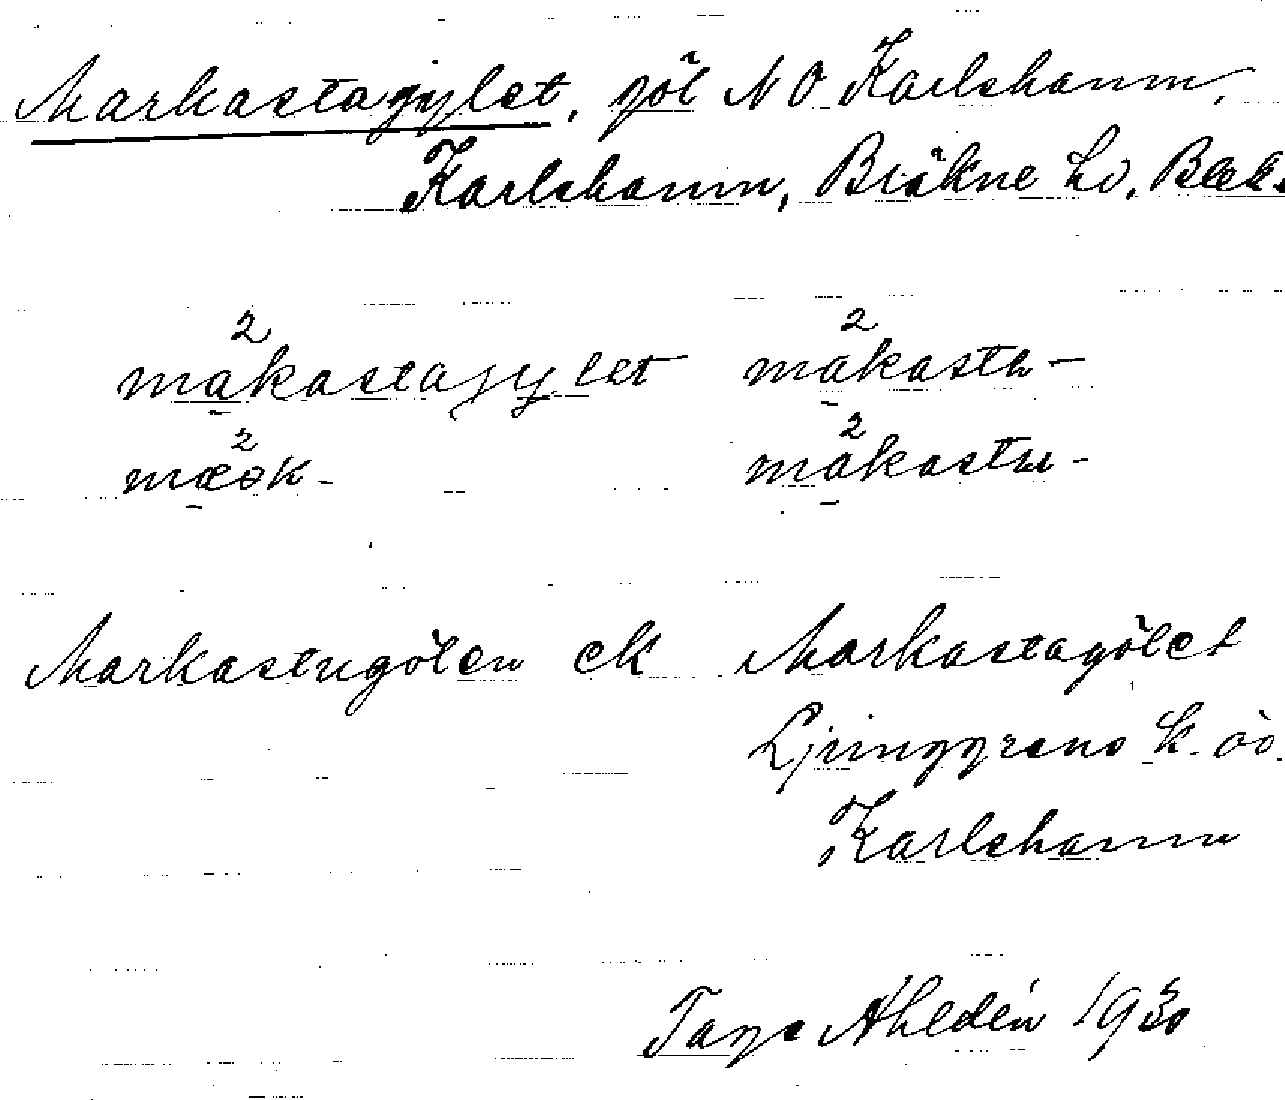 Markastagylet, göl NO Karlshamn,
Karlshamn, Bräkne hd, Blek.
2 2
mákastagylet mákasta-
2 2
mæǝk- mákastu-
Markastugölen ek Markastagölet
Ljunggrens k. öv.
Karlshamn
Tage Ahldén 1930